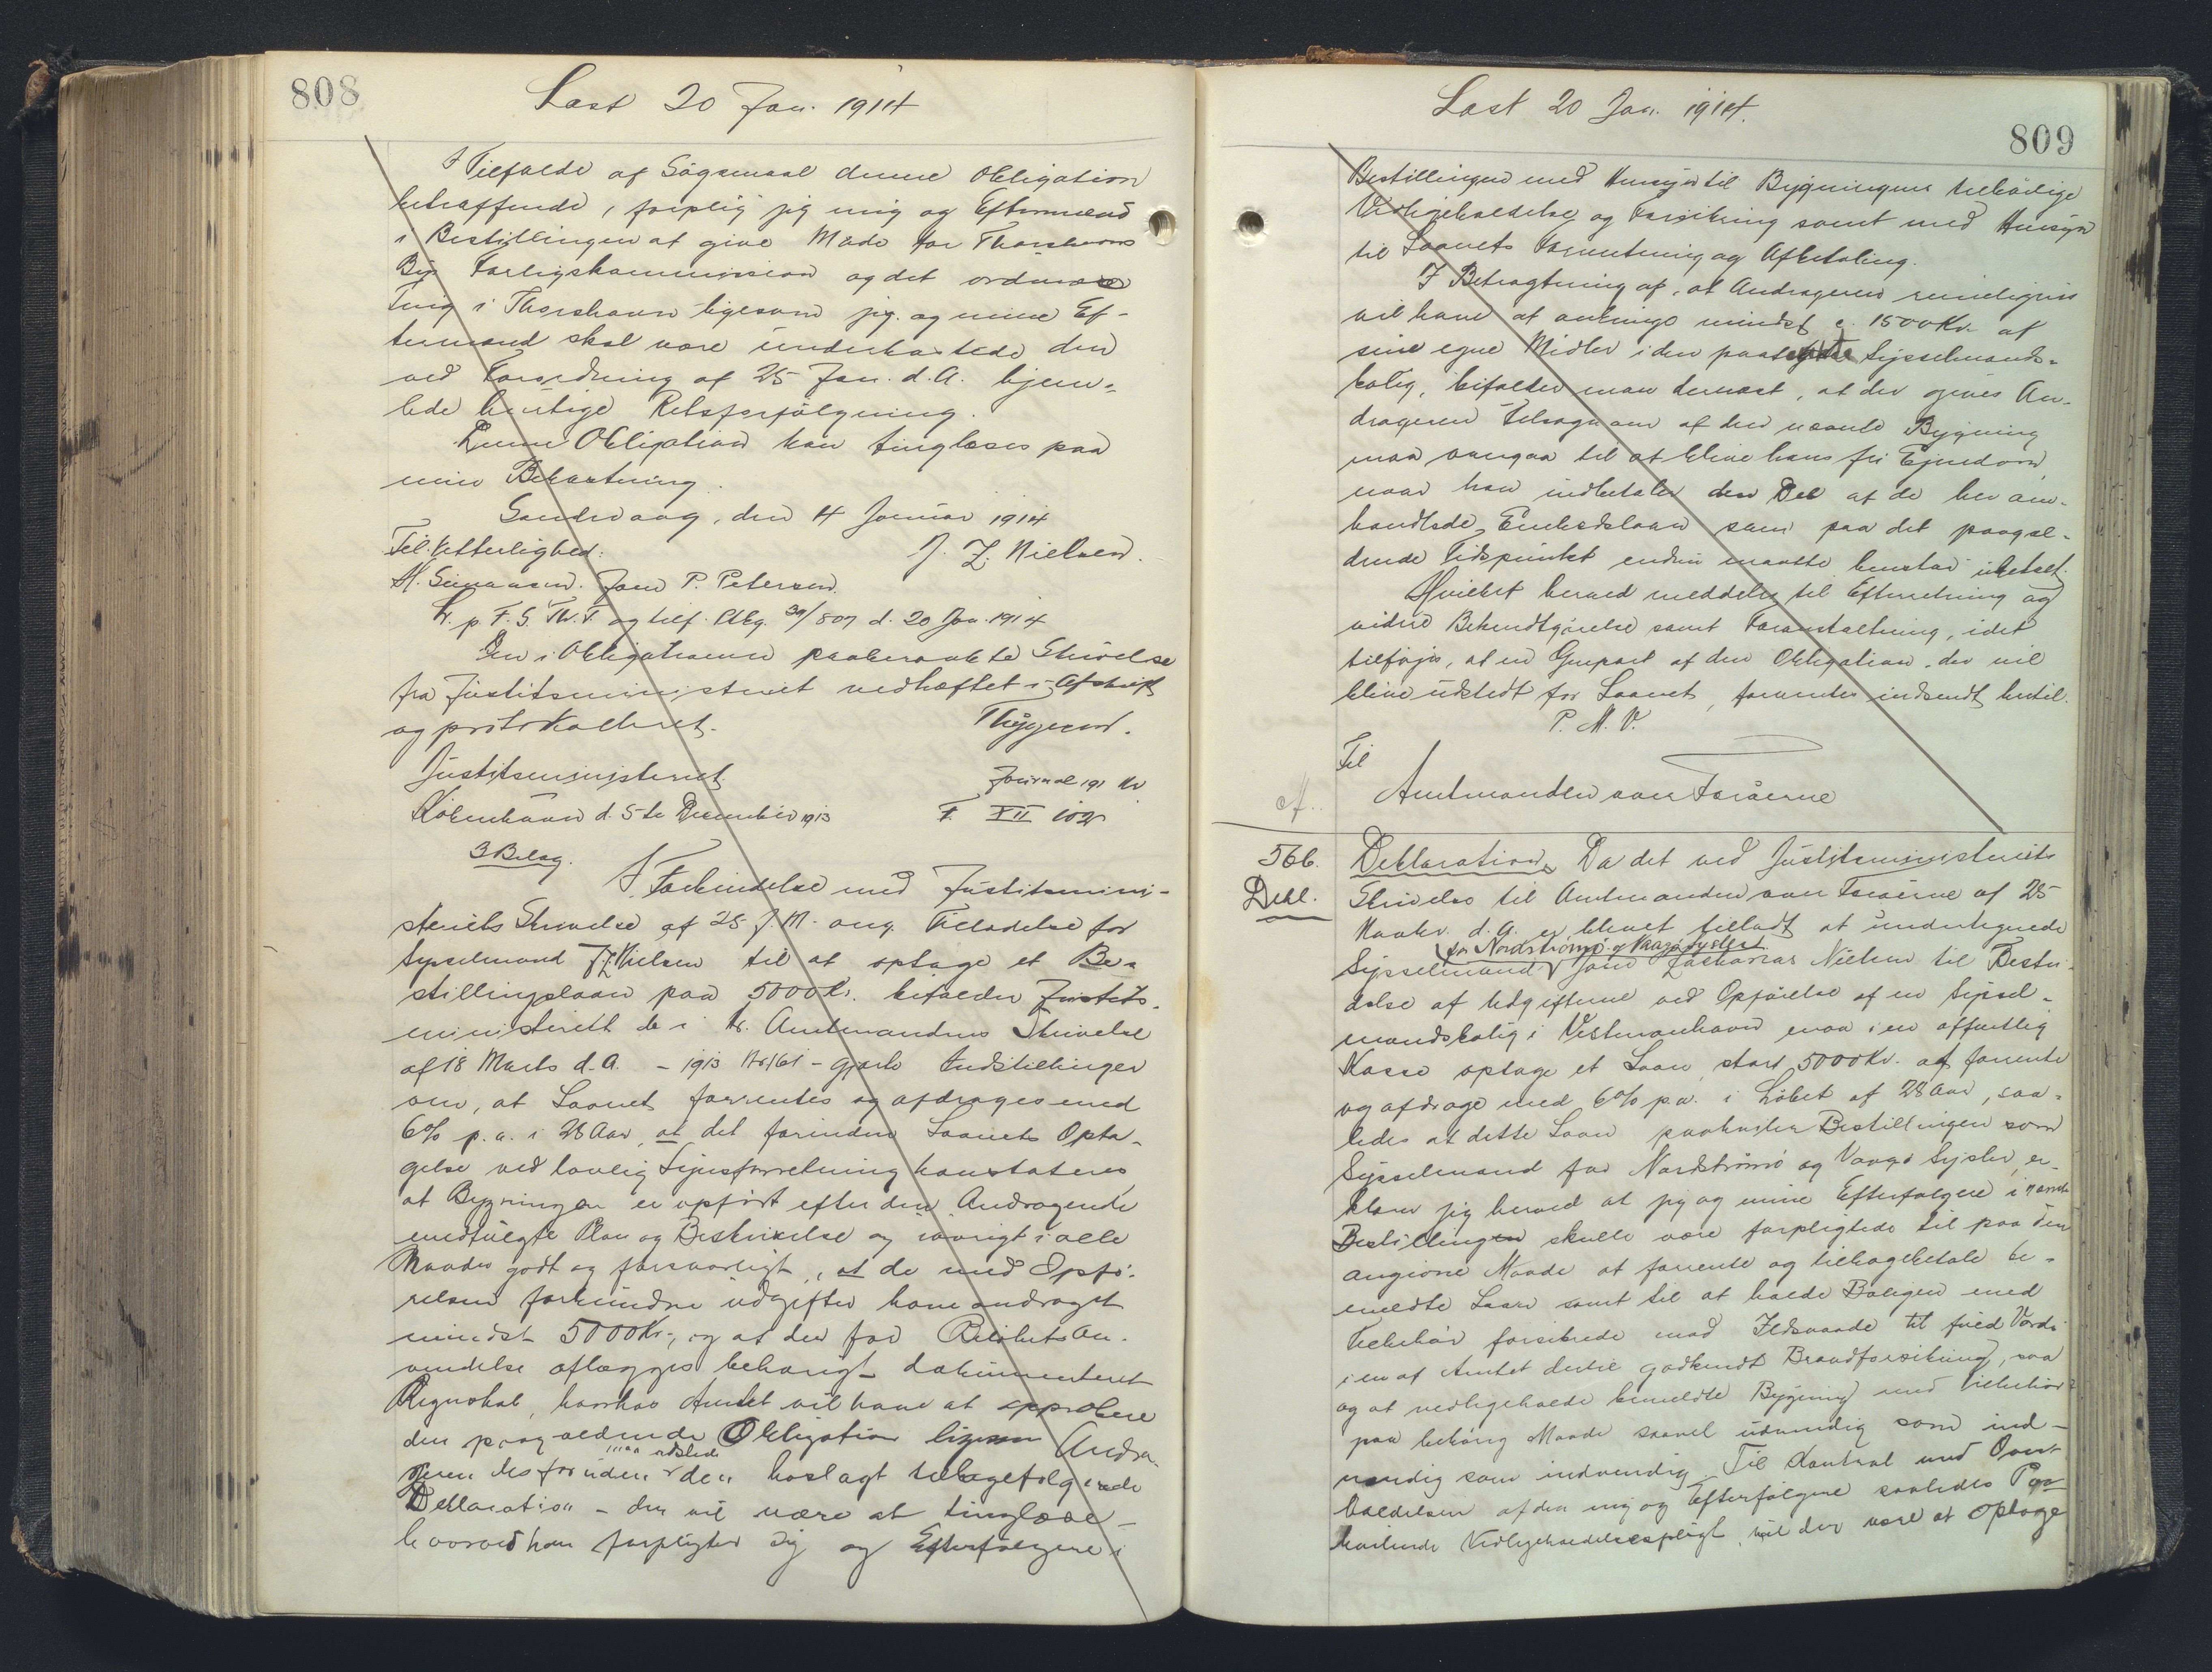 808
Læst 20 Jan. 1914
I Tilfælde af Sögsmaal denne Obligation
betræffende, forpligter jeg mig og Eftermænd
i Bestillingen at give Möde for Thorshavns
Byes Forligskommission og det ordinære
Ting i Thorshavn ligesom jeg og mine Ef-
termænd skal være underkastede den
ved Forordning af 25 Jan. d. A. hjem-
lede hurtige Retsforfölgning.
Denne Obligation kan tinglæses paa
min Bekostning.
Sandevaag, den 14 Januar 1914
Til Vitterlighed: J. Z. Nielsen.
M. Simonsen. Joen P. Petersen.
L. p. F. S. Th. T. og tilf. Abg. 39/807 d. 20 Jan. 1914
Den i Obligationen paaberaabte Skrivelse
fra Justitsministeriet vedhæftet i Afskrift
og protokolleret. Thygesen.
Justitsministeriet Journal 191 Nr
Köbenhavn d. 5te December 1913 F. XII 102
3 Bilag.
I Forbindelse med Justitsmini-
steriets Skrivelse af 25 f. M. ang. Tilladelse for
Sysselmand J. Z. Nielsen til at optage et Be-
stillingslaan paa 5000 Kr. bifalder Justits-
ministeriet de i Hr. Amtmandens Skrivelse
af 18 Marts d. A. - 1913 Nr 161 - gjorte Indstillinger
om, at Laanet forrentes og afdrages med
6% p. a. i 28 Aar, at det forinden Laanets Opta-
gelse ved lovlig Synsforretning konstateres
at Bygningen er opfört efter den Andragende
medfulgte Plan og Beskrivelse og iövrigt i alle
Maader godt og forsvarligt, at de med Opfö-
relsen forbundne Udgifter have andraget
mindst 5000 Kr., og at der for Belöbets An-
vendelse aflægges behörigt dokumenteret
Regnskab, hvorhos Amtet vil have at approbere
den paagældende Obligation ligesom Andra-
geren desforuden udstede den hoslagt tilbagefølgende
Deklaration - der vil være at tinglæse -
hvorved han forpligter sig og Efterfölgere i
Læst 20 Jan. 1914.
809
Bestillingen med Hensyn til Bygningens tilbörlige
Vedligeholdelse og Forsikring samt med Hensyn
til Laanets Forrentning og Afbetaling.
I Betragtning af, at Andrageren rimeligvis
vil have at anbringe mindst c. 1500 Kr. af
sine egne Midler i den paatænkte Sysselmands-
bolig, bifalder man dernæst, at der gives An-
drageren Tilsagn om at den nævnte Bygning
maa overgaa til at blive hans fri Ejendom,
naar han indbetaler den Del af de her om-
handlede Embedslaan som paa det paagæl-
dende Tidspunkt endnu maatte henstaa ubetalt.
Hvilket herved meddeles til Efterretning og
videre Bekendtgörelse samt Foranstaltning, idet
tilföjes, at en Genpart af den Obligation der vil
blive udstedt for Laanet, forventes indsendt hertil.
P. M. V.
Til
Amtmanden over Færöerne
A.
566. Dekl.
Deklaration. Da det ved Justitsministeriets
Skrivelse til Amtmanden over Færöerne af 25
Novbr. d. A. er blevet tilladt at undertegnede
for Nordströmö og Vaagö Sysler
Sysselmand Joen Zacharias Nielsen til Bestri-
delse af Udgifterne ved Opförelse af en Syssel-
mandsbolig i Vestmanhavn maa i en offentlig
Kasse optage et Laan, stort 5000 Kr. at forrente
og afdrage med 6% p.a. i Löbet af 28 Aar, saa-
ledes at dette Laan paahviler Bestillingen som
Sysselmand for Nordströmö og Vaagö Sysler, er-
klærer jeg herved at jeg og mine Efterfölgere i nævnte
Bestillingen skulle være forpligtede til paa den
angivne Maade at forrente og tilbagebetale be-
meldte Laan samt til at holde Boligen med
Tilbehör forsikrede mod Ildsvaade til fuld Værdi
i en af Amtet dertil godkendt Brandforsikring, saa
og at vedligeholde bemeldte Bygning med Tilbehör
paa behörig Maade saavel udvendig som ind-
vendig som indvendig. Til Kontrol med Over-
holdelsen af den mig og Efterfölgere saaledes Paa-
hvilende Vedligeholdelsespligt, vil der være at optage